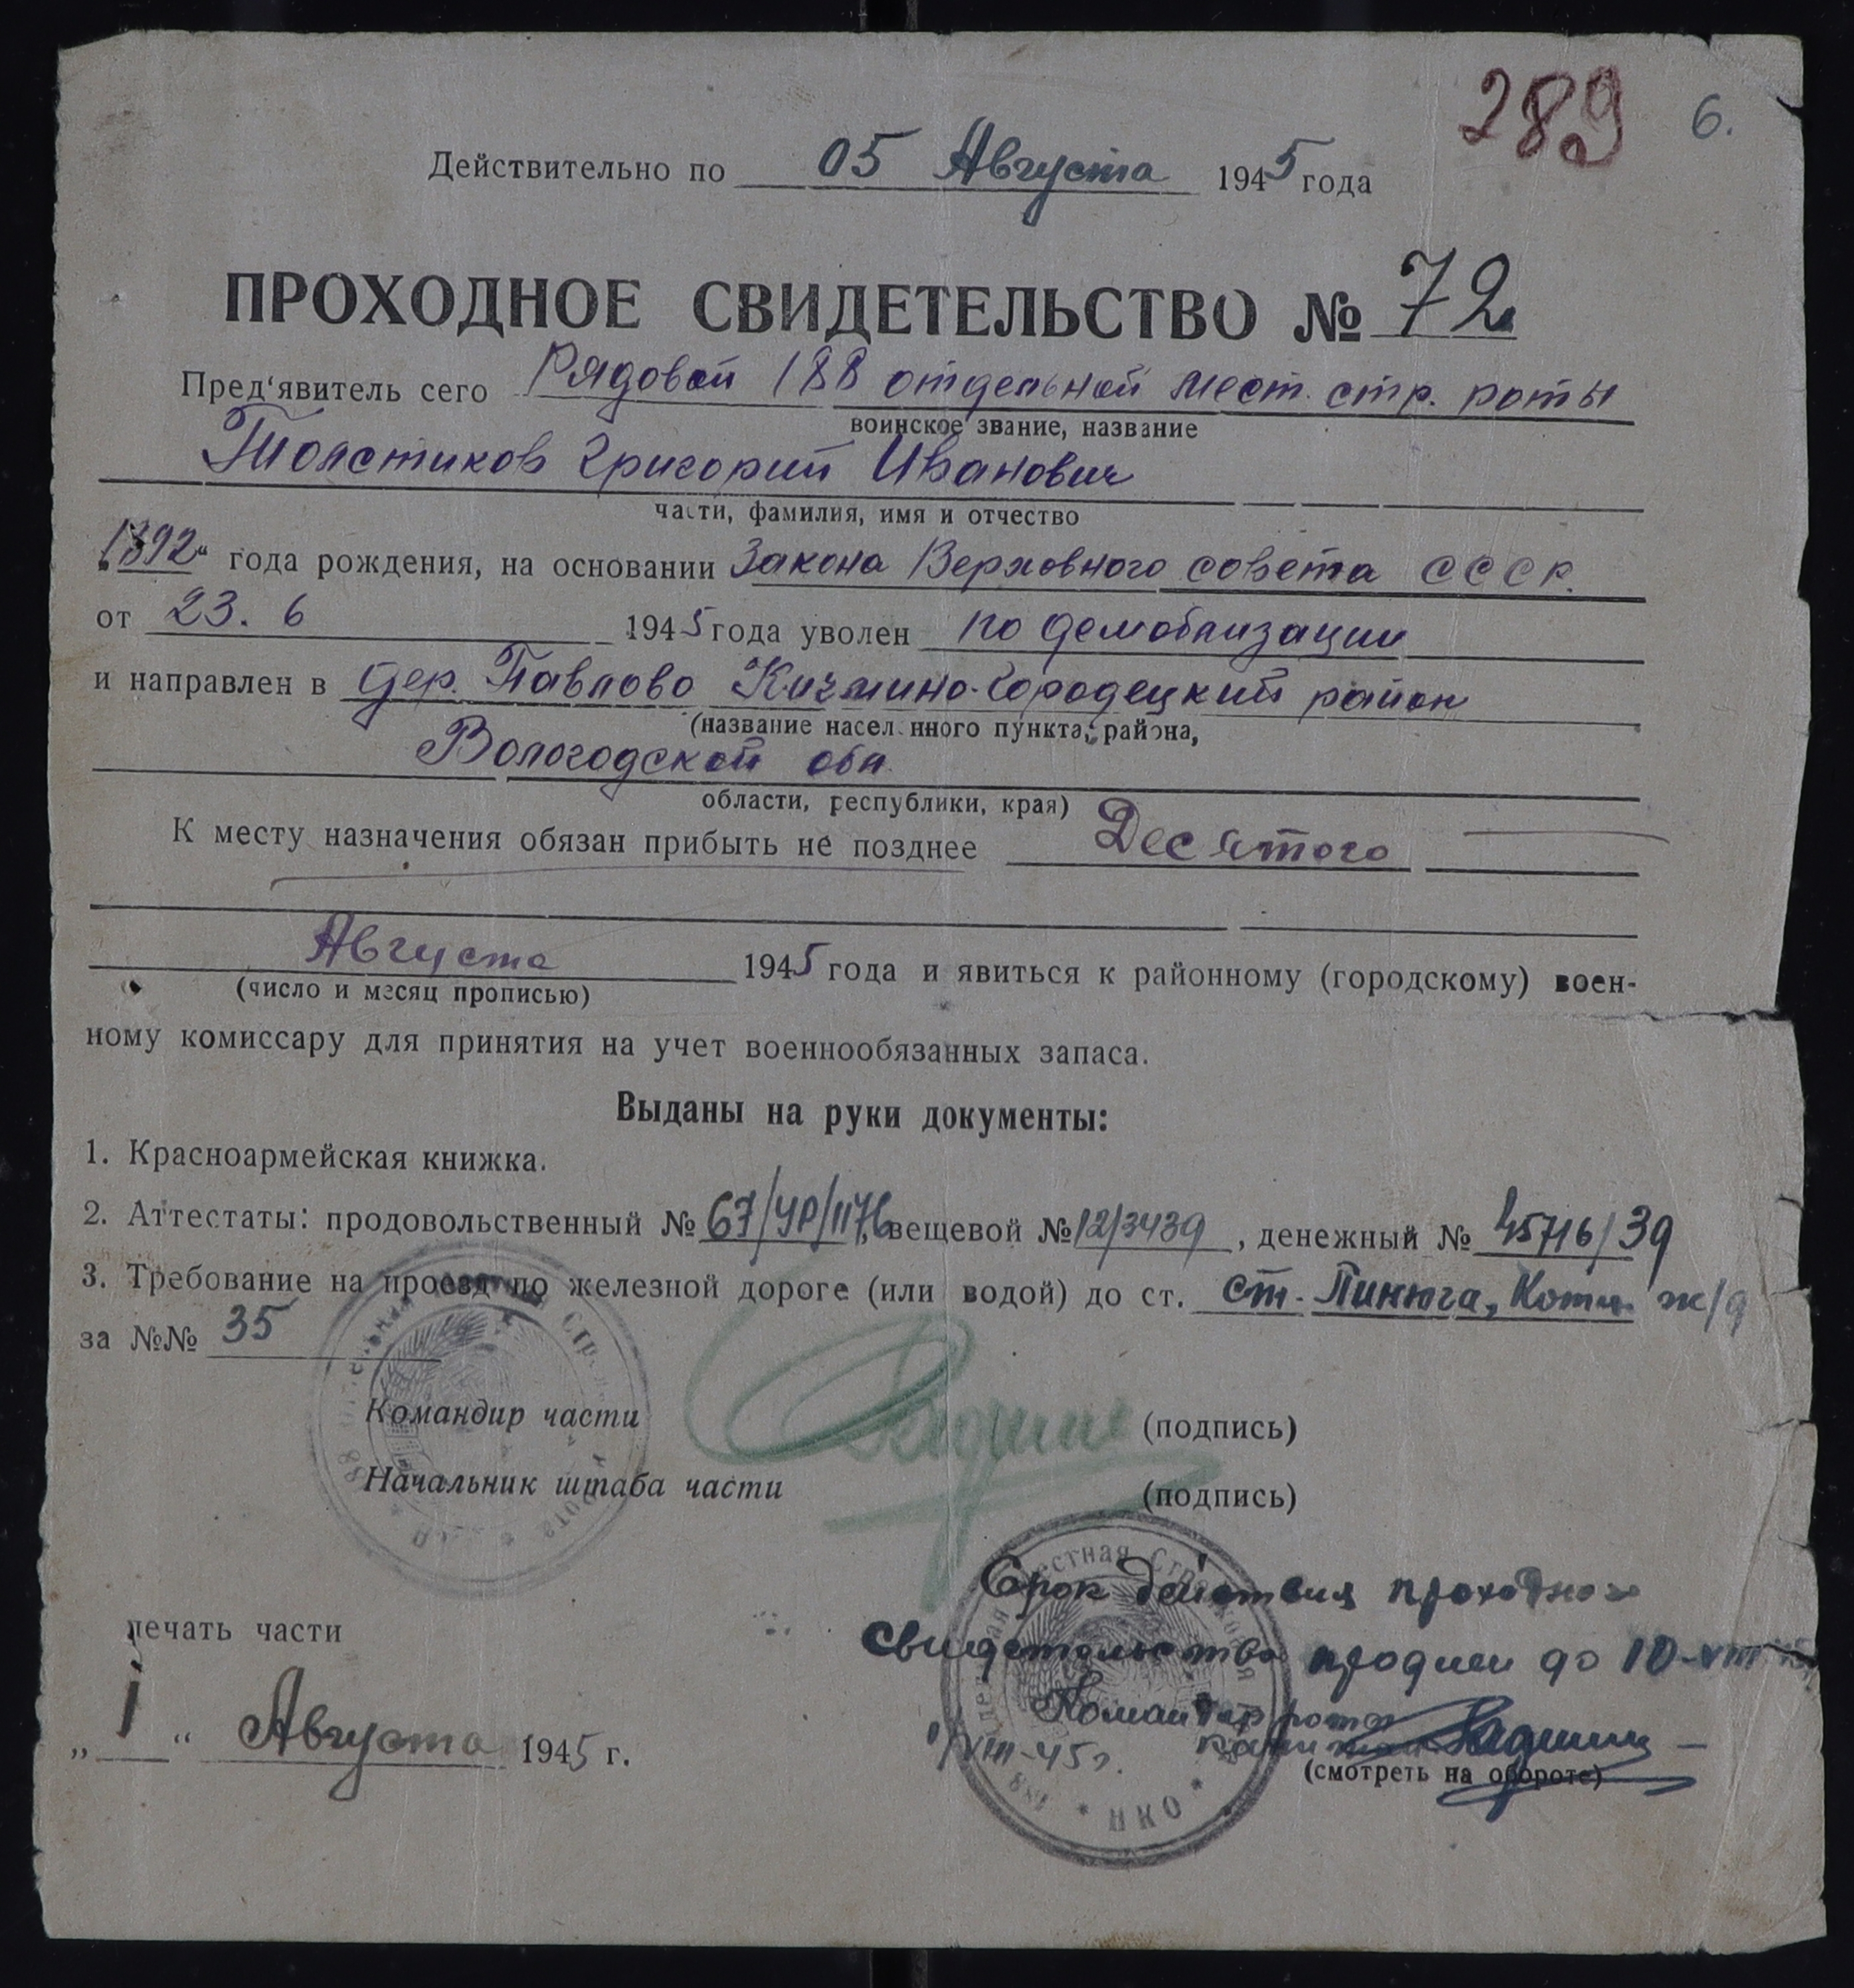 289 6.
Действительно по 05 Августа 1945 года
ПРОХОДНОЕ СВИДЕТЕЛЬСТВО № 72
Пред'явитель сего Рядовой 188 отдельной мест. стр. роты
воинское звание, название
Толстиков Григорий Иванович
части, фамилия, имя и отчество
„1892“ года рождения, на основании Закона Верховного совета СССР.
от 23. 6 1945 года уволен по демобилизации
и направлен в дер. Павлово Кичмино-Городецкий район
(название насел нного пункта, района,
Вологодской обл.
области, республики, края)
К месту назначения обязан прибыть не позднее Десятого
Августа 1945 года и явиться к районному (городскому) воен-
(число и месяц прописью)
ному комиссару для принятия на учет военнообязанных запаса.
Выданы на руки документы:
1. Красноармейская книжка.
2. Аттестаты: продовольственный № 67/УР/1176, вещевой № 12/3439, денежный № 45716/39
3. Требование на проезд по железной дороге (или водой) до ст. ст. Пинюга, Котл. ж/д
за №№ 35
Командир части (подпись)
Начальник штаба части (подпись)
Срок действия проходного
печать части
свидетельства продлен до 10-VIII 45
Командир роты
„1“ Августа 1945 г.
1/VIII-45г. капитан
(смотреть на обороте)
188 Отдельная Местная Стрелковая Рота * НКО *